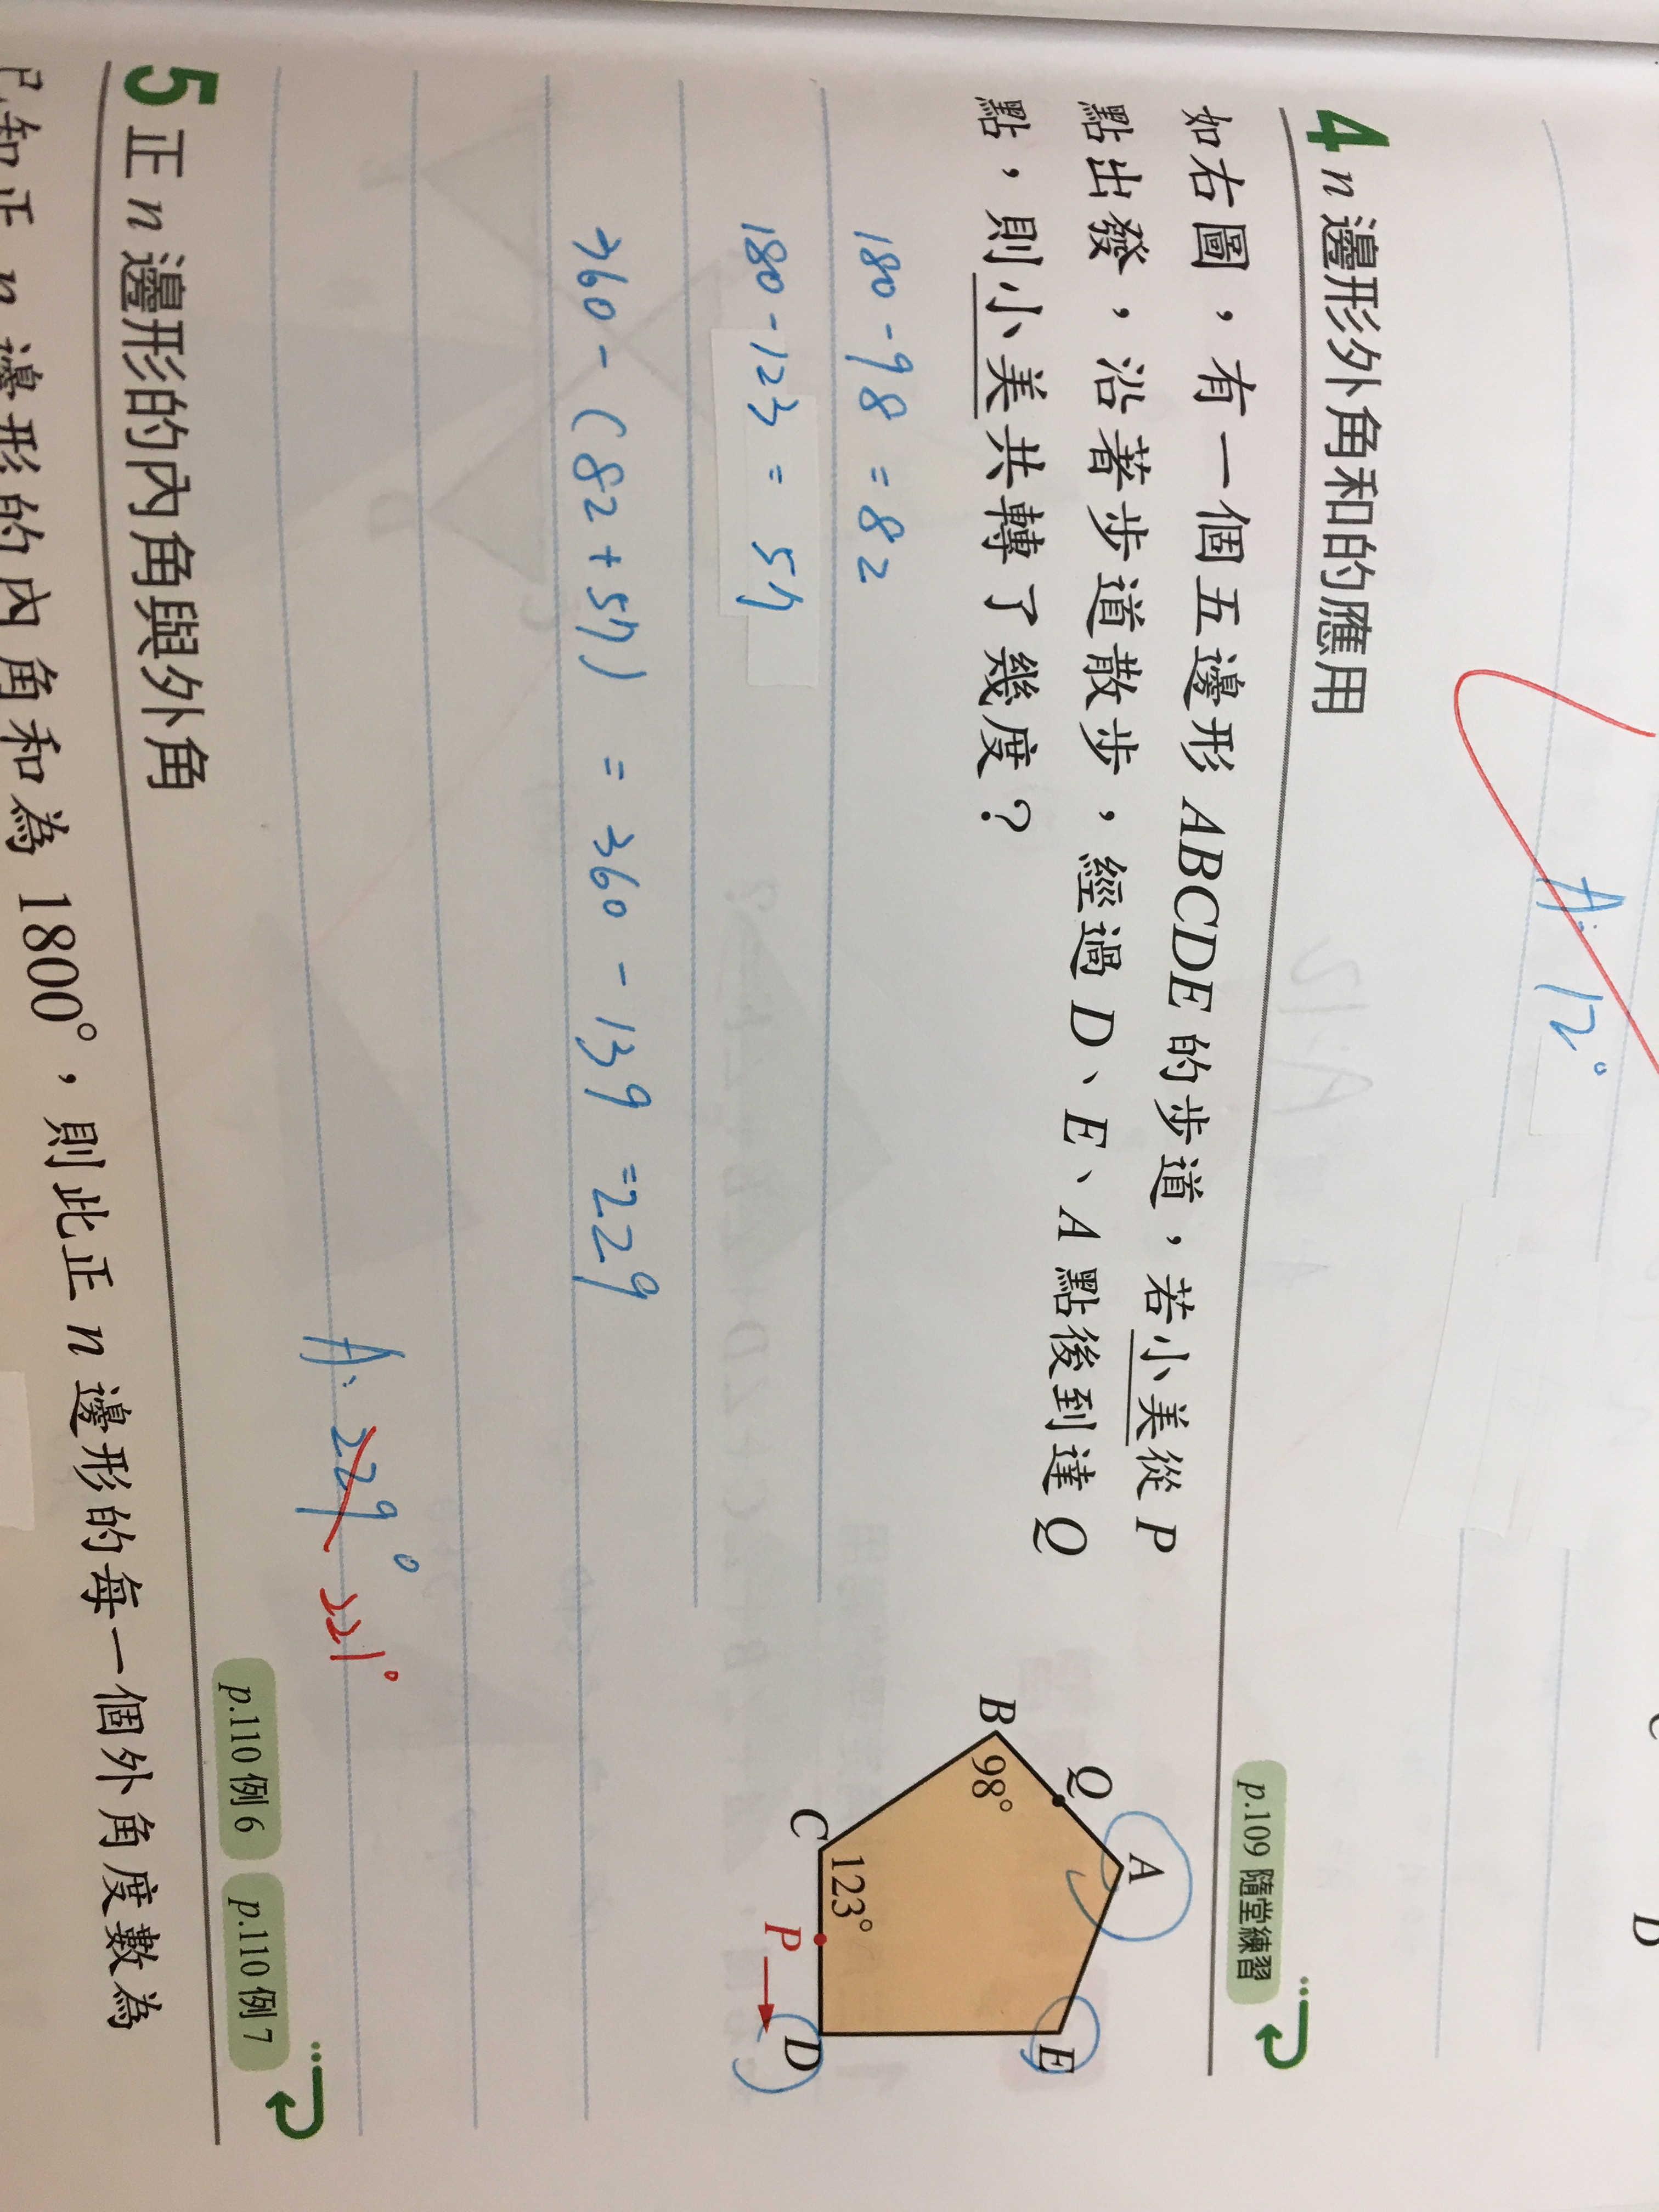 A: 12°
C
D
4 n邊形外角和的應用
p.109 隨堂練習
如右圖，有一個五邊形 ABCDE 的步道，若小美從 P
點出發，沿著步道散步，經過 D、E、A 點後到達 Q
點，則小美共轉了幾度？
A
Q
E
B
98°
C
123°
P
D
180-98=82
180-123=57
360-(82+57)=360-139=229
A: 229° 221°
5 正 n 邊形的內角與外角
p.110 例6
p.110 例7
已知正 n 邊形的內角和為 1800°，則此正 n 邊形的每一個外角度數為